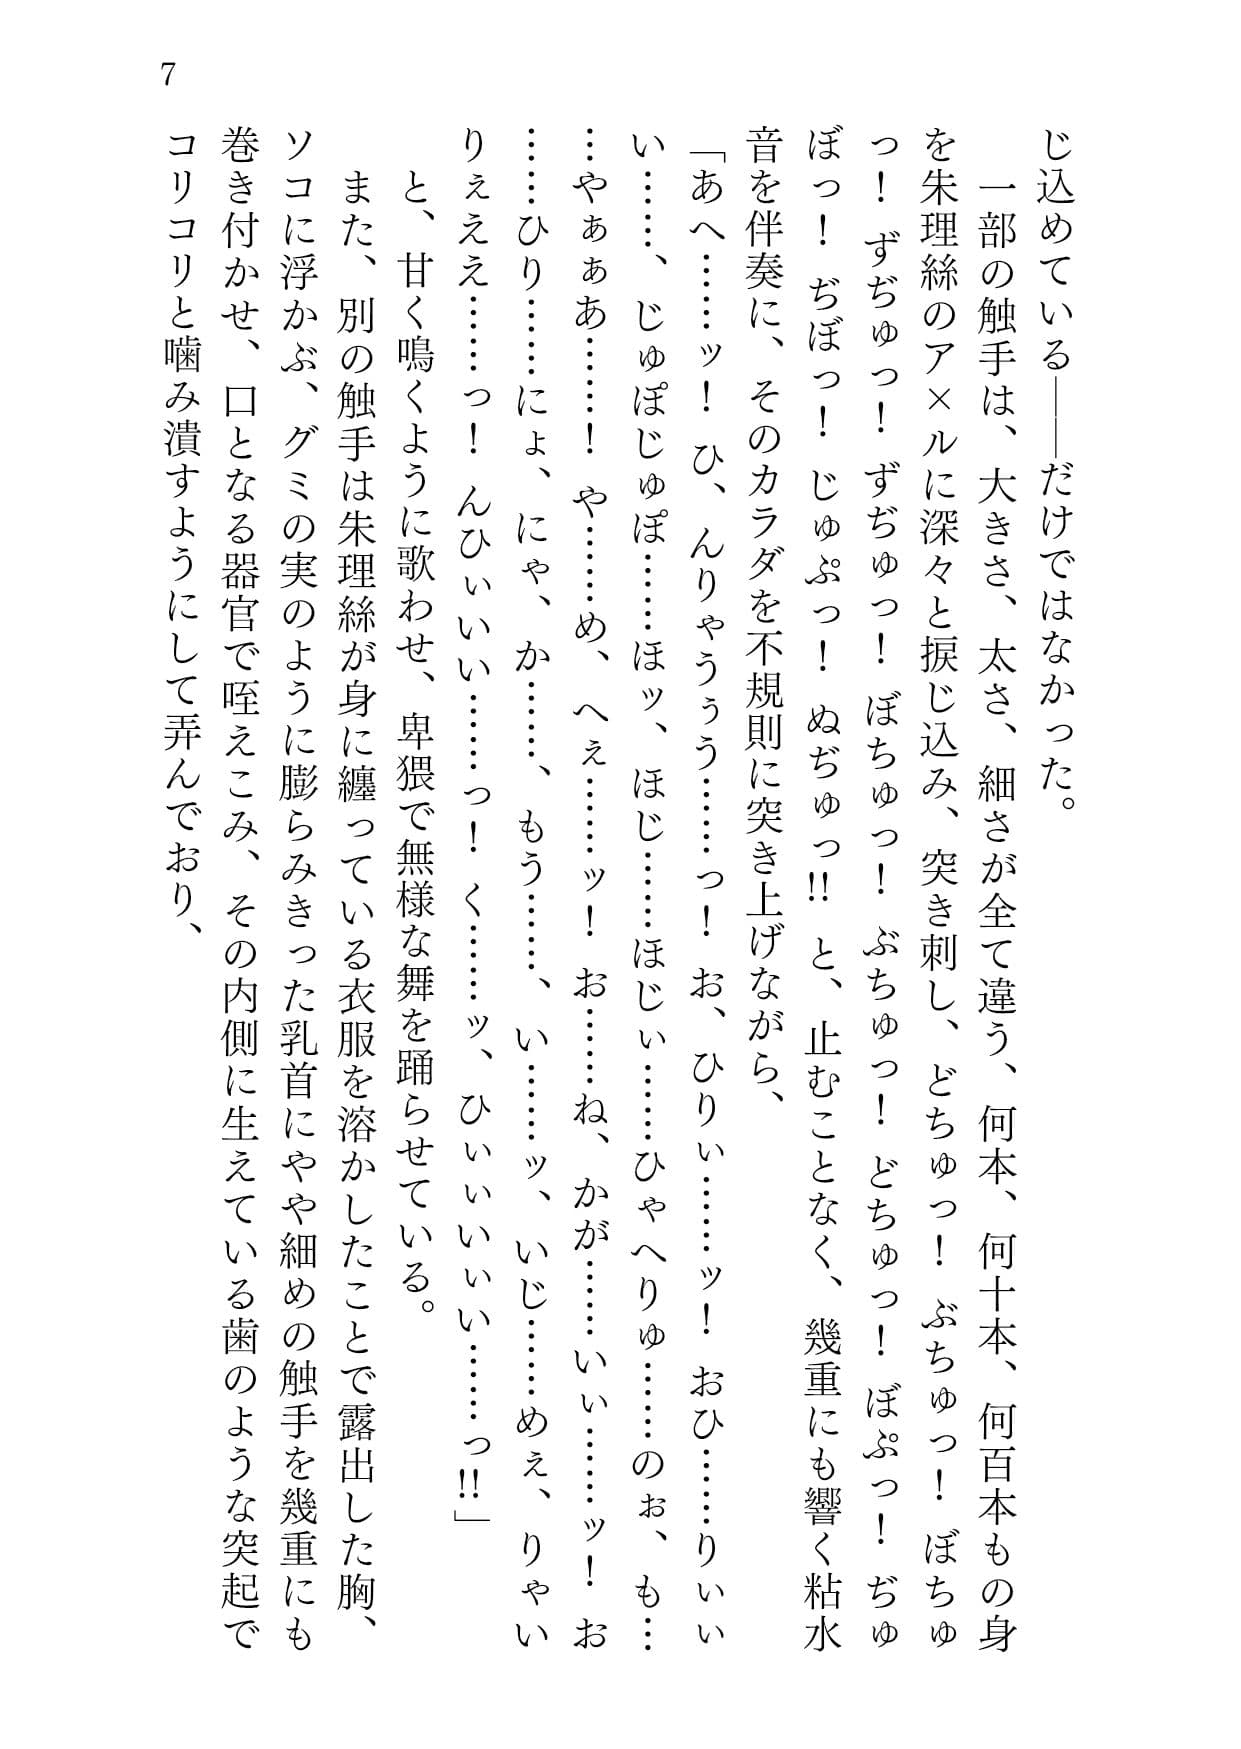 7
じ込めている――だけではなかった。
一部の触手は、大きさ、太さ、細さが全て違う、何本、何十本、何百本もの身
を朱理絲のア×ルに深々と捩じ込み、突き刺し、どちゅっ！ ぶちゅっ！ ぼちゅ
っ！ ずぢゅっ！ ずぢゅっ！ ぼちゅっ！ ぶちゅっ！ どちゅっ！ ぼぷっ！ ぢゅ
ぼっ！ ぢぼっ！ じゅぷっ！ ぬぢゅっ!! と、止むことなく、幾重にも響く粘水
音を伴奏に、そのカラダを不規則に突き上げながら、
「あへ……ッ！ ひ、んりゃうぅう……っ！ お、ひりぃ……ッ！ おひ……りぃぃ
い……、じゅぽじゅぽ……ほッ、ほじ……ほじぃ……ひゃへりゅ……のぉ、も…
…やぁぁあ……！ や……め、へぇ……ッ！ お……ね、かが……いぃ……ッ！ お
……ひり……にょ、にゃ、か……、もう……、い……ッ、いじ……めぇ、りゃい
りぇええ……っ！ んひぃいい……っ！ く……ッ、ひぃぃいぃい……っ!!」
と、甘く鳴くように歌わせ、卑猥で無様な舞を踊らせている。
また、別の触手は朱理絲が身に纏っている衣服を溶かしたことで露出した胸、
ソコに浮かぶ、グミの実のように膨らみきった乳首にやや細めの触手を幾重にも
巻き付かせ、口となる器官で咥えこみ、その内側に生えている歯のような突起で
コリコリと噛み潰すようにして弄んでおり、